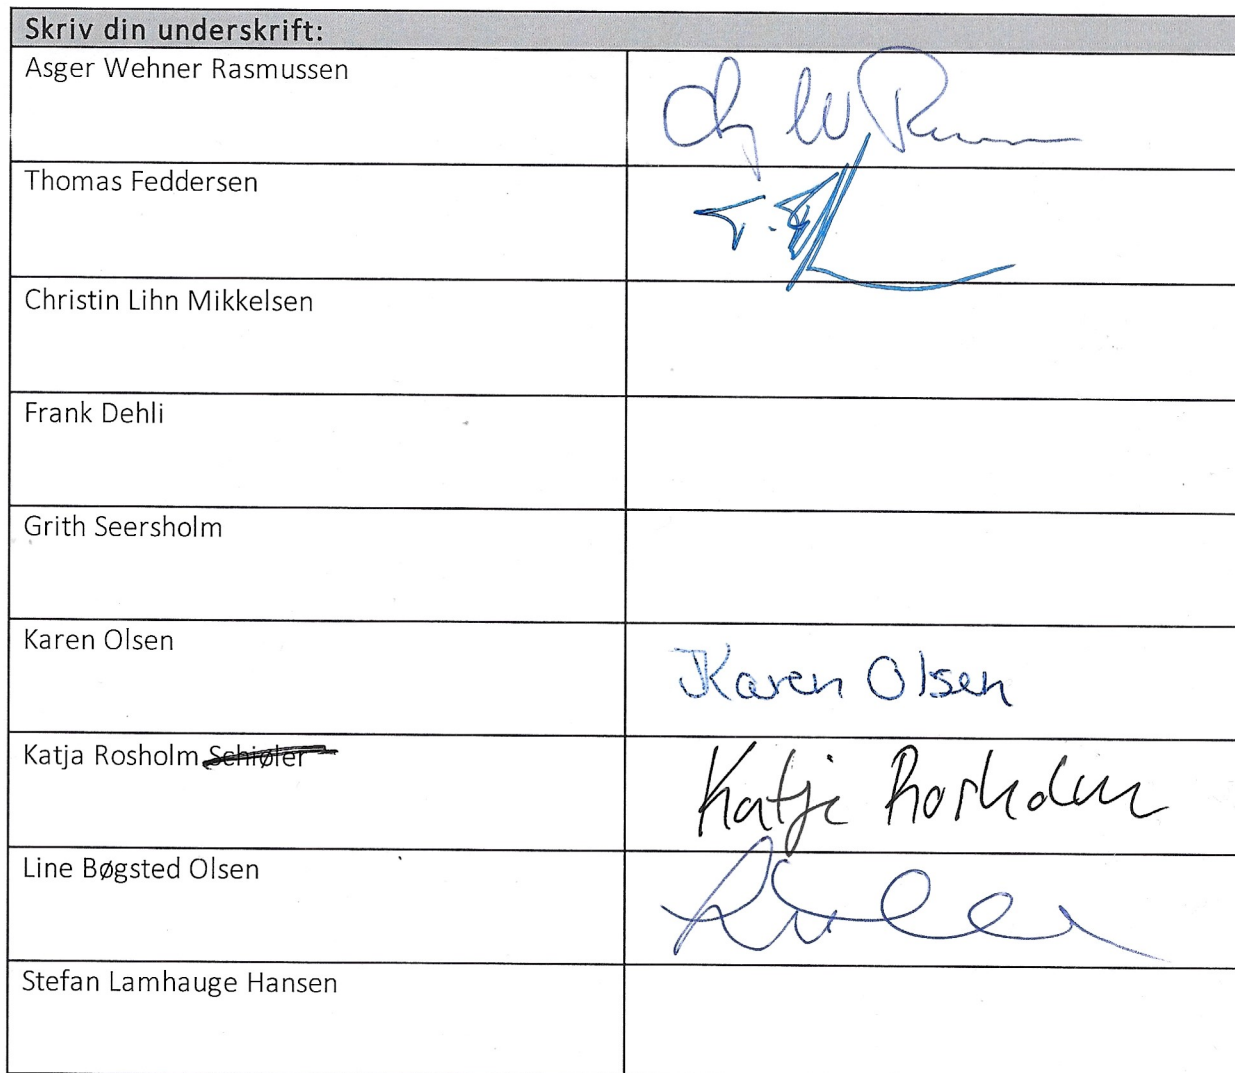 Skriv din underskrift:
Asger Wehner Rasmussen
Thomas Feddersen
Christin Lihn Mikkelsen
Frank Dehli
Grith Seersholm
Karen Olsen
Karen Olsen
Katja Rosholm Schiøler
Katja Rosholm
Line Bøgsted Olsen
Stefan Lamhauge Hansen